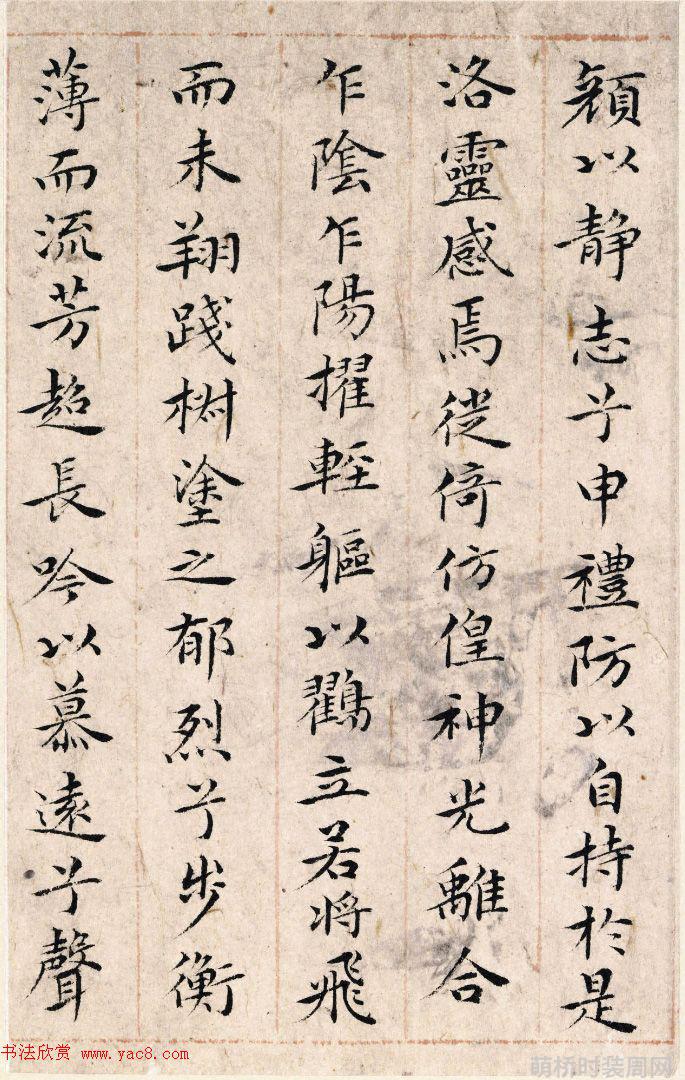 顔以静志兮申禮防以自持於是
洛靈感焉徙倚仿偟神光離合
乍陰乍陽擢輕軀以鸖立若将飛
而未翔踐椒塗之郁烈兮步衡
薄而流芳超長吟以慕遠兮聲
书法欣赏 www.yac8.com
萌桥时装周网